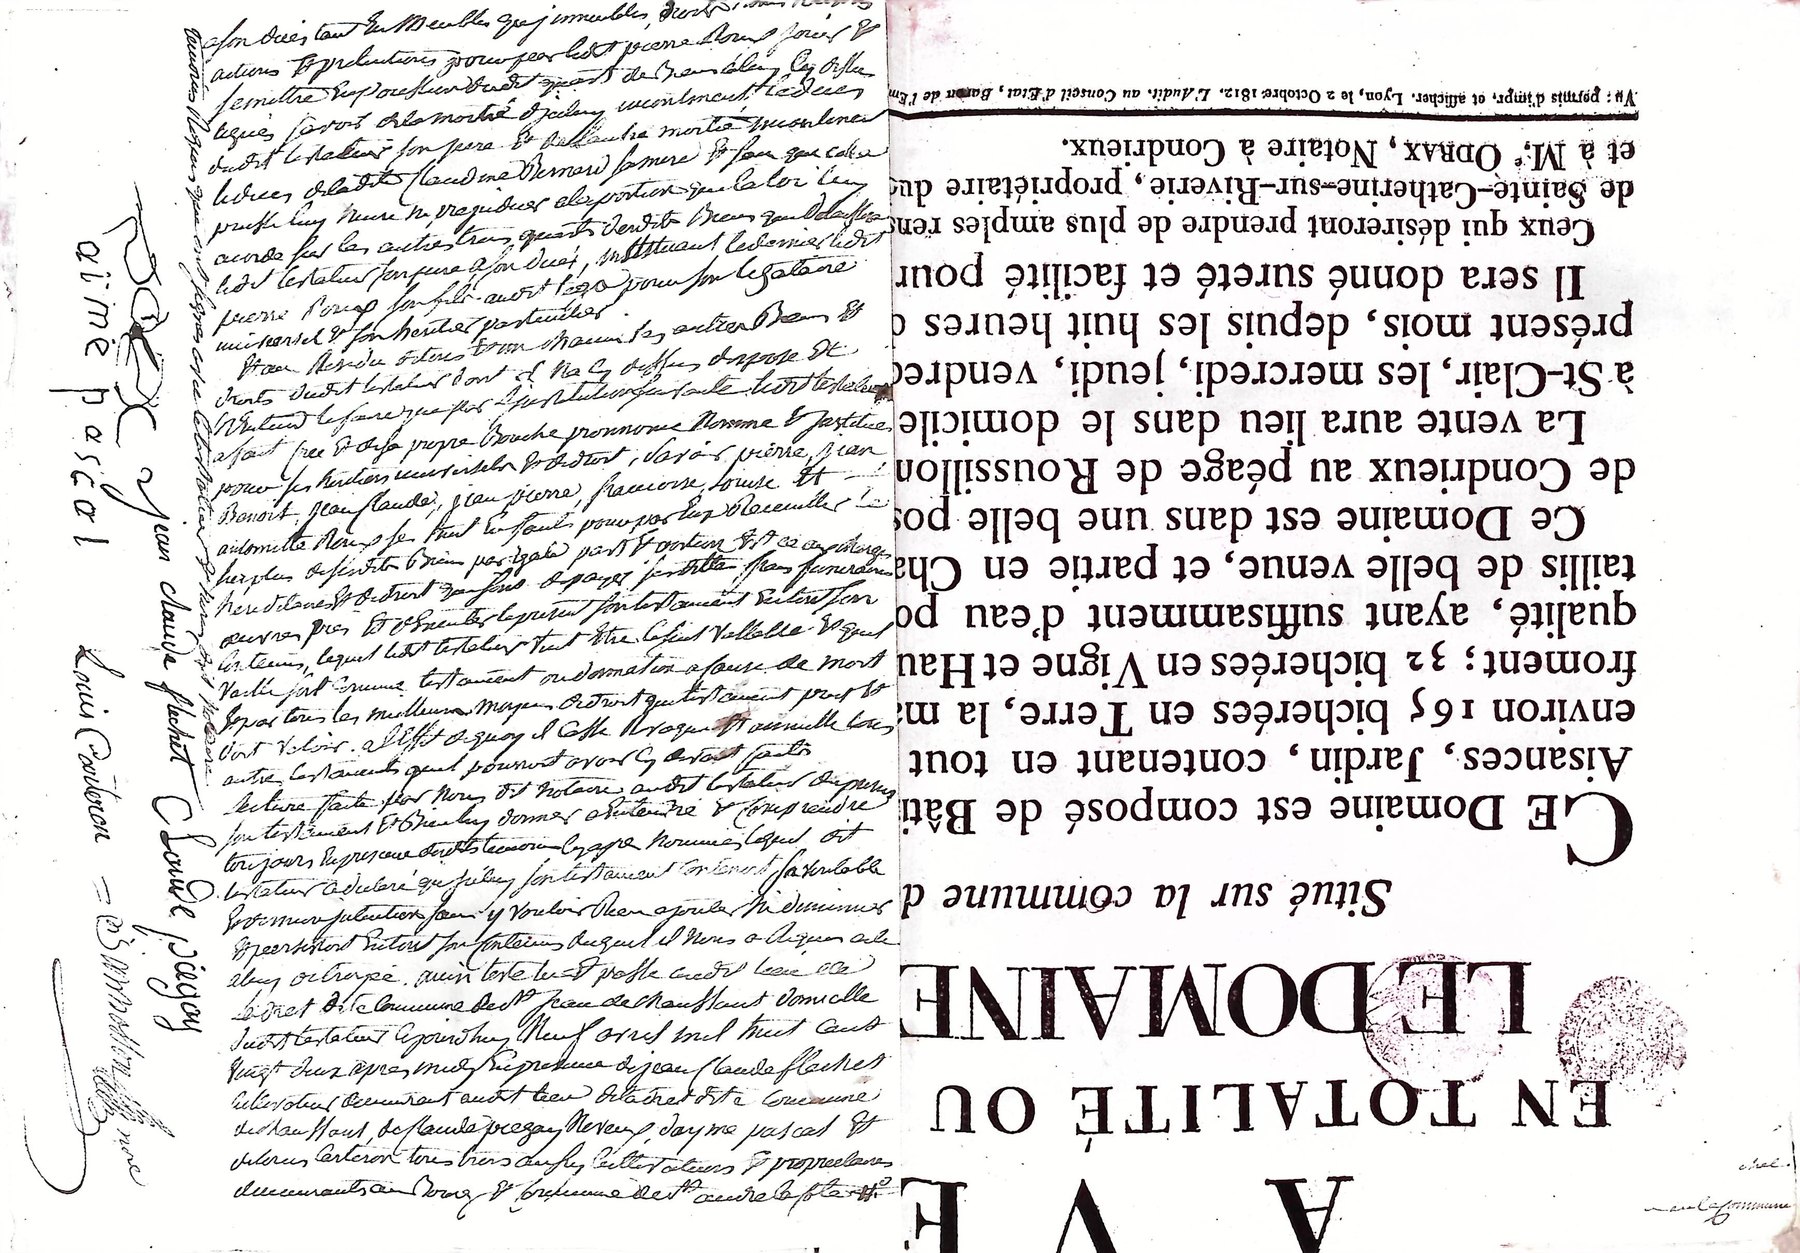 a son décès tant en meubles que immeubles, droits, noms raisons
actions et prétentions pour par ledit pierre Roux jouir et
se mettre en possession dudit quart de Biens a luy cy dessus
légués savoir de la moitié d'iceluy incontinent le décès
dudit testateur son pere et de l'autre moitié incontinent
le décès de ladite Claudine Bernard sa mere et sans que cela
puisse luy nuire ni prejudicier a la portion que la loi luy
acorde sur les autres trois quarts desdits Biens que delaissera
ledit testateur son pere a son décès, instituant ce dernier ledit
pierre Roux son fils audit legs pour son legataire
universel et son heritier particulier.
Et au Residu de tous et un chacun ses autres Biens et
droits dudit testateur dont il n'a cy dessus disposé et
a fait créé et de sa propre Bouche prononcé nommé et institué
pour ses heritiers universels et de droit, savoir, pierre, jean,
Benoit, jean Claude, jean pierre, françoise, louise et
antoinette Roux ses huit enfants pour par Eux Recueillir le
surplus desdits Biens par égale part et portion et ce aux charges
héréditaires et de droit de payer ses dettes, frais funeraires
œuvres pies et d'executer le present son testament en tout son
contenu, lequel ledit testateur veut être le seul valable et qu'il
vaille soit comme testament ou donation a cause de mort
et par tous les meilleurs moyens de droit que testament peut et
doit valoir. a l'Effet de quoy il casse Revoque et annulle tous
autres testaments qu'il pourroit avoir cy devant faits
lecture faite par Nous dit notaire audit testateur du present
son testament et Bien luy donner a Entendre et Comprendre
toujours en presence desdits temoins cy apres nommés lequel dit
testateur a declaré que c'est son testament contenant sa veritable
et derniere intention sans y vouloir Rien ajouter ni diminuer
et persistant en tout son contenu duquel il Nous a Requis acte
a luy octroyé. ainsi testé lu et passé audit lieu de
la dret dite Commune de St jean de chaussant domicile
dudit testateur Cejourd'huy Neuf avril mil huit cent
vingt deux apres midy En presence de jean Claude flachet
cultivateur demeurant audit lieu de la dret dite Commune
de chaussant, de Claude piegay Neveux, d'ayme pascal et
de louis Carteron tous trois aussy Cultivateurs et proprietaires
demeurants au Bourg et Commune de St andré la Côte
Roux
jean claude flachet
Claude piégay
aimé pascal
Louis Carteron
A VE
EN TOTALITÉ OU
LE DOMAINE
Situé sur la commune d
CE Domaine est composé de Bâti
Aisances, Jardin, contenant en tout
environ 165 bicherées en Terre, la ma
froment; 32 bicherées en Vigne et Hau
qualité, ayant suffisamment d'eau po
taillis de belle venue, et partie en Cha
Ce Domaine est dans une belle pos
de Condrieux au péage de Roussillon
La vente aura lieu dans le domicile
à St-Clair, les mercredi, jeudi, vendred
présent mois, depuis les huit heures d
Il sera donné sureté et facilité pour
Ceux qui désireront prendre de plus amples rens
de Sainte-Catherine-sur-Riverie, propriétaire du
et à M.e ODRAX, Notaire à Condrieux.
Vu: permis d'impr. et afficher. Lyon, le 2 Octobre 1812. L'Audit. au Conseil d'Etat, Baron de l'Em